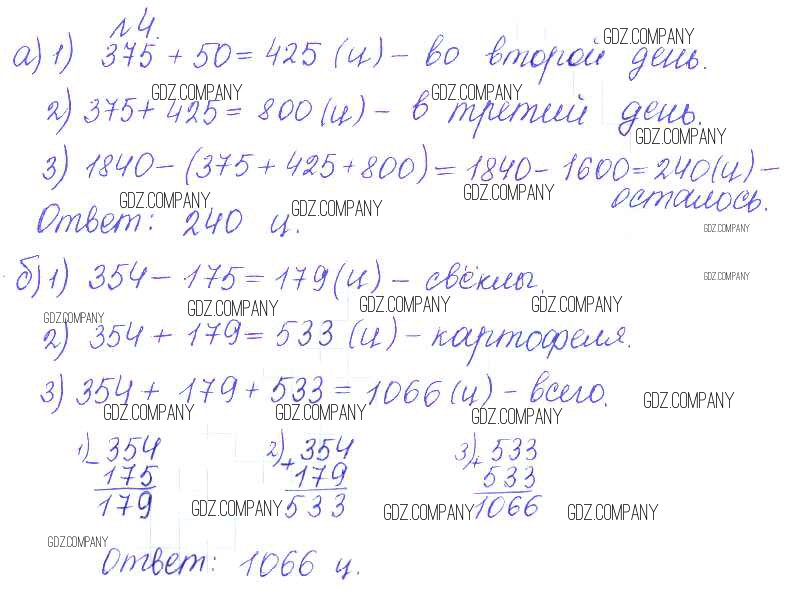 №4.
а) 1) 375 + 50 = 425 (ц) – во второй день.
GDZ.COMPANY
2) 375 + 425 = 800 (ц) – в третий день.
GDZ.COMPANY GDZ.COMPANY
GDZ.COMPANY
3) 1840 – (375 + 425 + 800) = 1840 – 1600 = 240 (ц) –
осталось.
GDZ.COMPANY GDZ.COMPANY GDZ.COMPANY
Ответ: 240 ц.
GDZ.COMPANY
б) 1) 354 – 175 = 179 (ц) – свёклы.
GDZ.COMPANY
GDZ.COMPANY GDZ.COMPANY GDZ.COMPANY GDZ.COMPANY
2) 354 + 179 = 533 (ц) – картофеля.
3) 354 + 179 + 533 = 1066 (ц) – всего.
GDZ.COMPANY
GDZ.COMPANY GDZ.COMPANY GDZ.COMPANY
1) 354 2) 354 3) 533
– 175 + 179 + 533
179 533 1066
GDZ.COMPANY GDZ.COMPANY GDZ.COMPANY
GDZ.COMPANY
Ответ: 1066 ц.